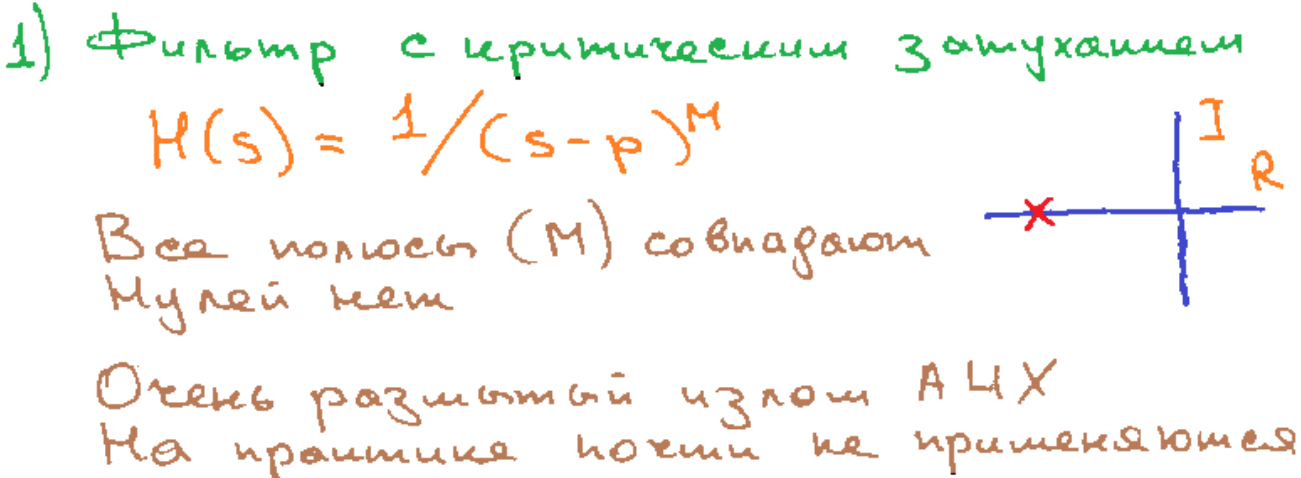 1) Фильтр с критическим затуханием
H(s) = 1/(s-p)^M
I
R
Все полюсы (M) совпадают
Нулей нет
Очень размытый излом АЧХ
На практике почти не применяются